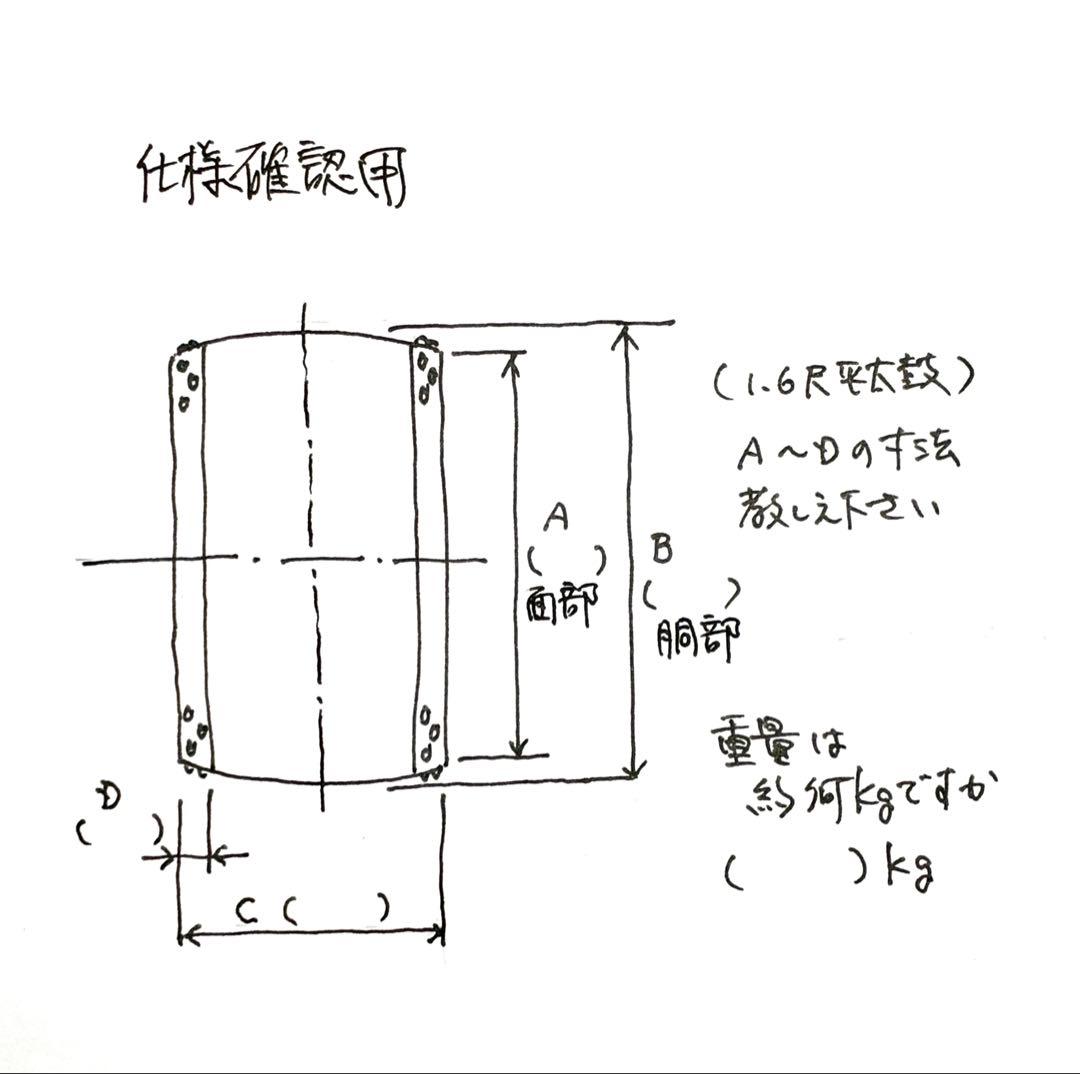 仕様確認用
(1.6尺平太鼓)
A～Dの寸法
教しえ下さい
A
(　　)
面部
B
(　　)
胴部
重量は
約何kgですか
(　　)kg
D
(　　)
C (　　)